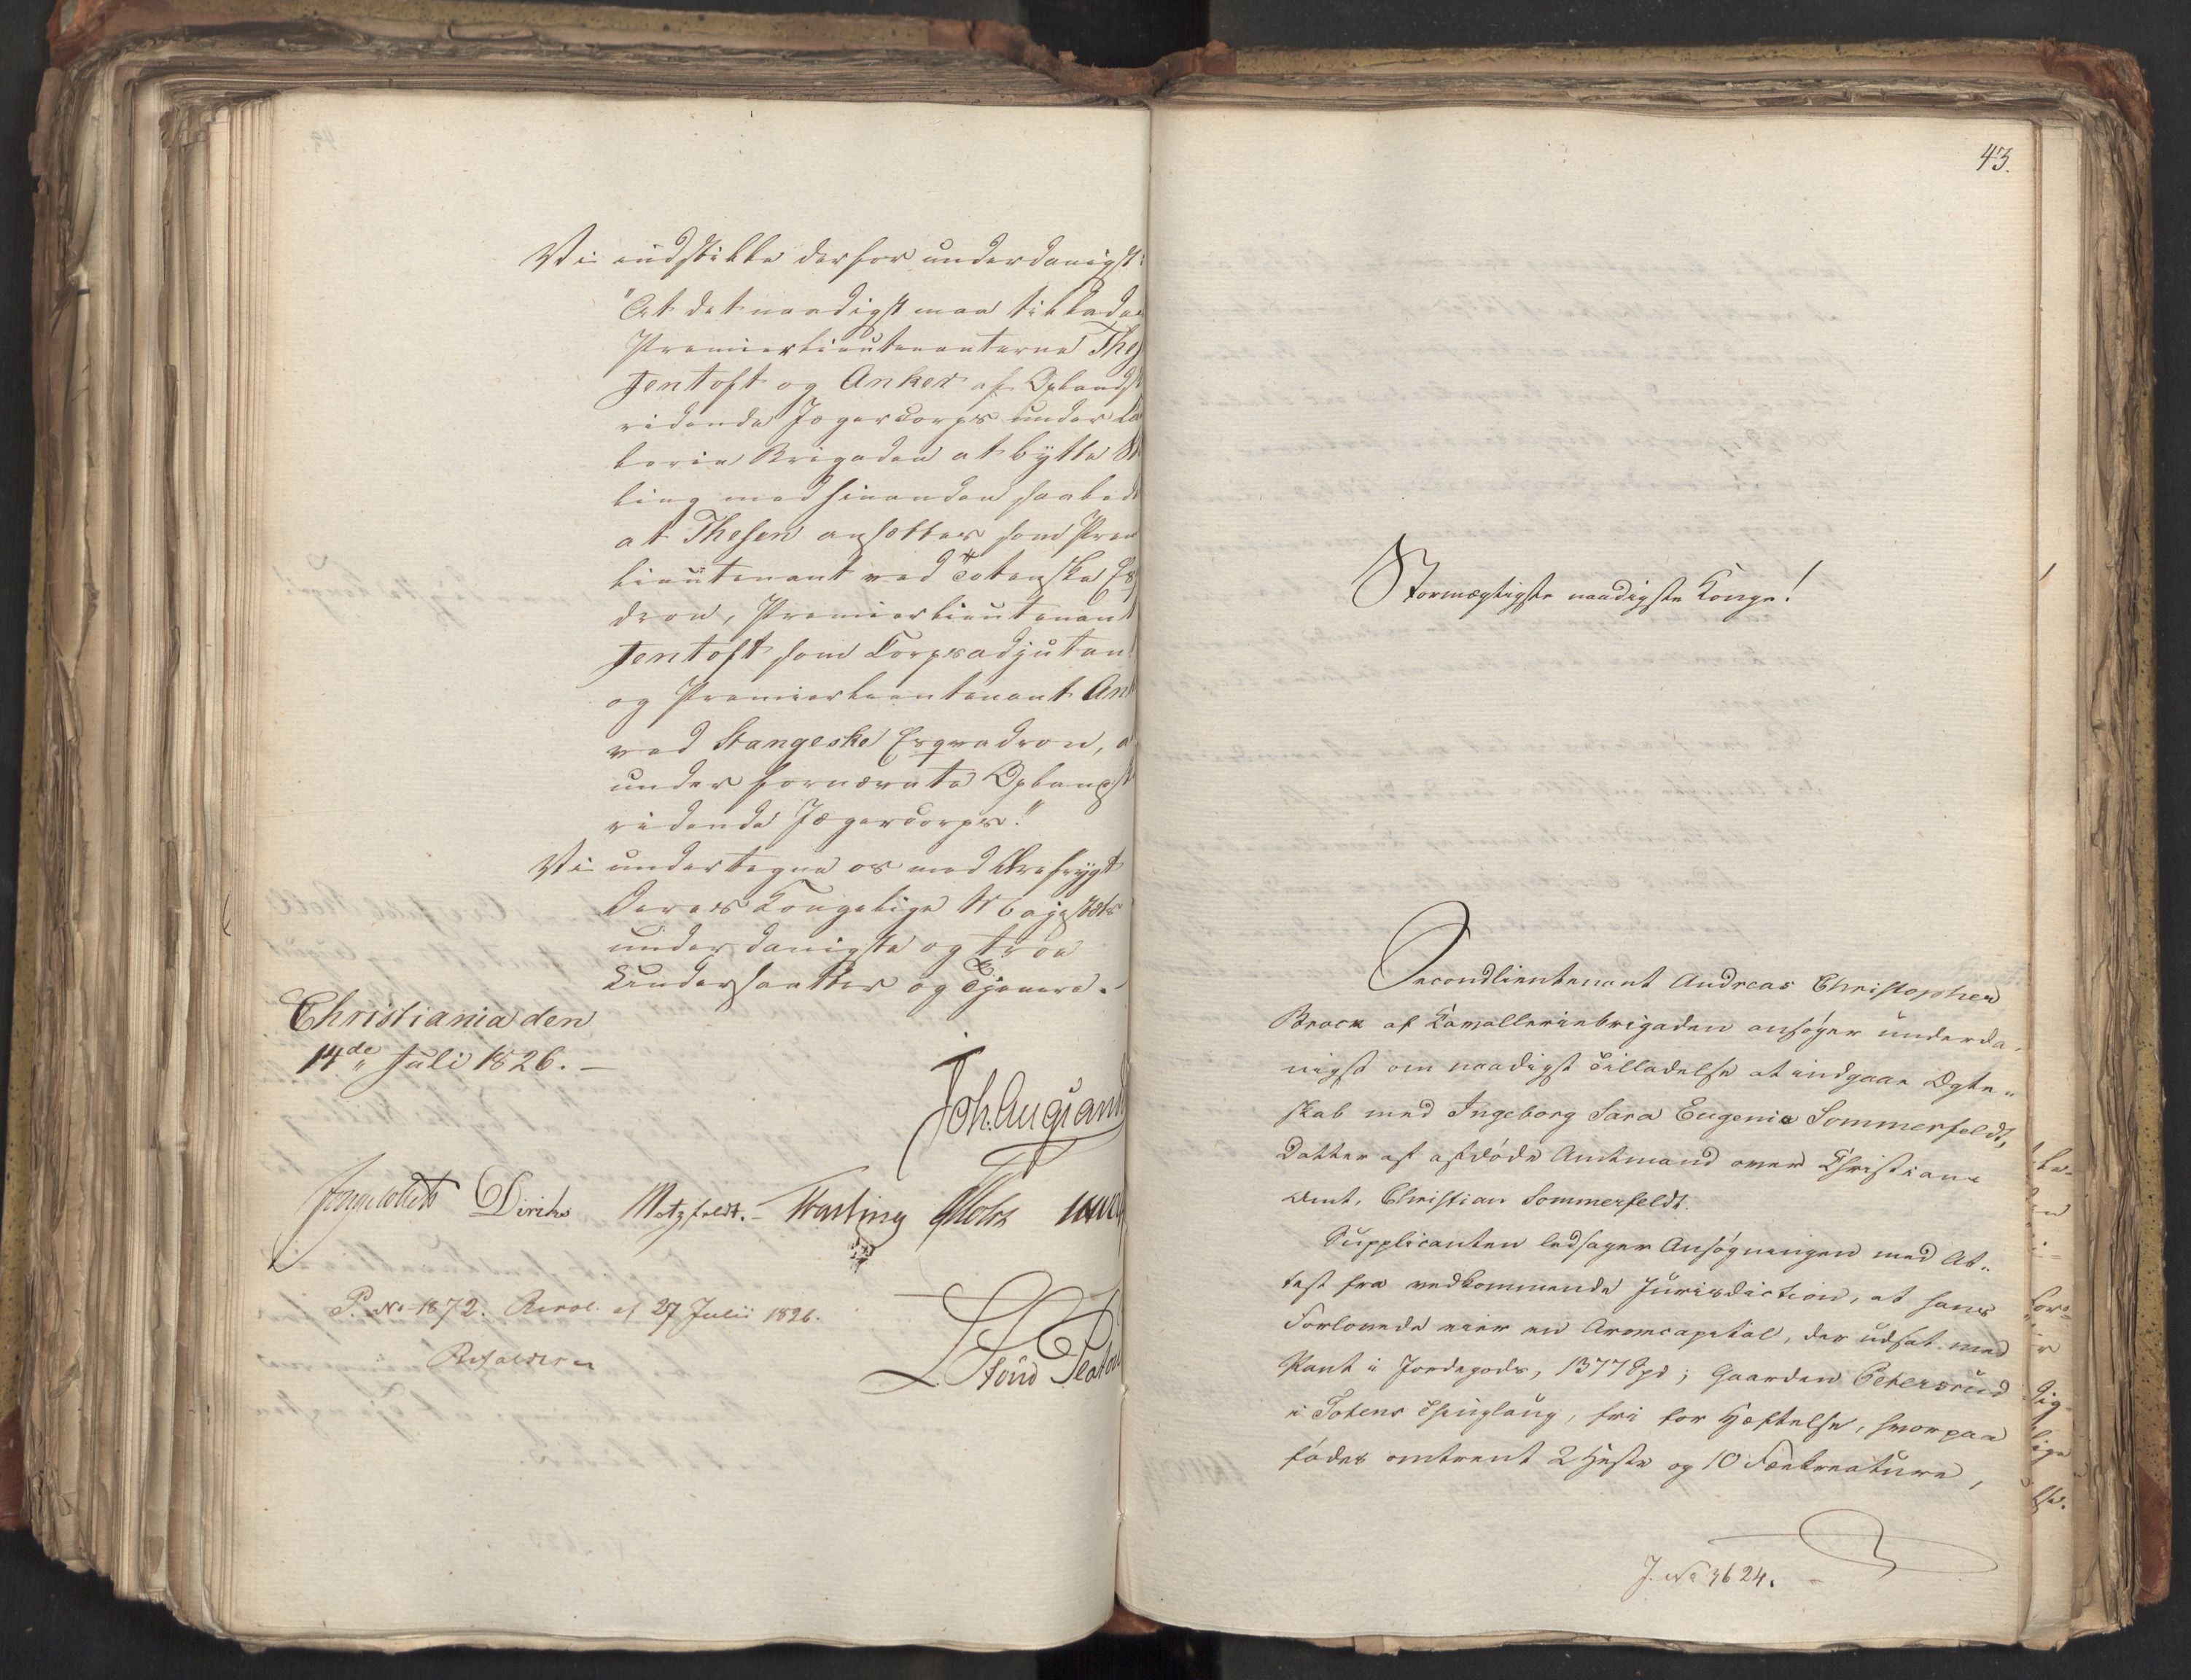 Vi indstille derfor underdanigst:
"At det naadigst maa tillades
Premierlieutenanterne Thes
Jentoft og Anker af Oplandsk
ridende Jægercorps under Ca
lerie Brigaden at bytte St
ling med hinanden saaled
at Thesen ansættes som Prem
lieutenant ved Totenske Es
dron, Premierlieutenant
Jentoft som Corpsadjutant
og Premierlieutenant Ank
ved Stangeske Esqvadron, a
under fornævnte Oplandsk
ridende Jægercorps."
Vi undertegne os med Ærefrygt
Deres Kongelige Majestæts
underdanigste og troe
Undersaatter og Tjenere.
Christiania den
14de Juli 1826. –
Joh. Aug Sand
Diriks Motzfeldt. –
P. No 1872. Resol. af 27 Julii 1826.
Bifaldes
43.
Stormægtigste naadigste Konge!
Secondlieutenant Andreas Christopher
Brock af Cavalleriebrigaden ansøger underda-
nigst om naadigst Tilladelse at indgaae Ægte-
skab med Ingeborg Sara Eugenia Sommerfeldt,
Datter af afdøde Amtmand over Christians
Amt, Christian Sommerfeldt.
Supplicanten ledsager Ansøgningen med At-
test fra vedkommende Jurisdiction, at hans
Forlovede eier en Arvecapital, der udsat med
Pant i Jordegods, 1377 Spd; Gaarden Petersrud
i Totens Thinglaug, fri for Hæftelse, hvorpaa
fødes omtrent 2 Heste og 10 Fækreature,
J. No 3624.